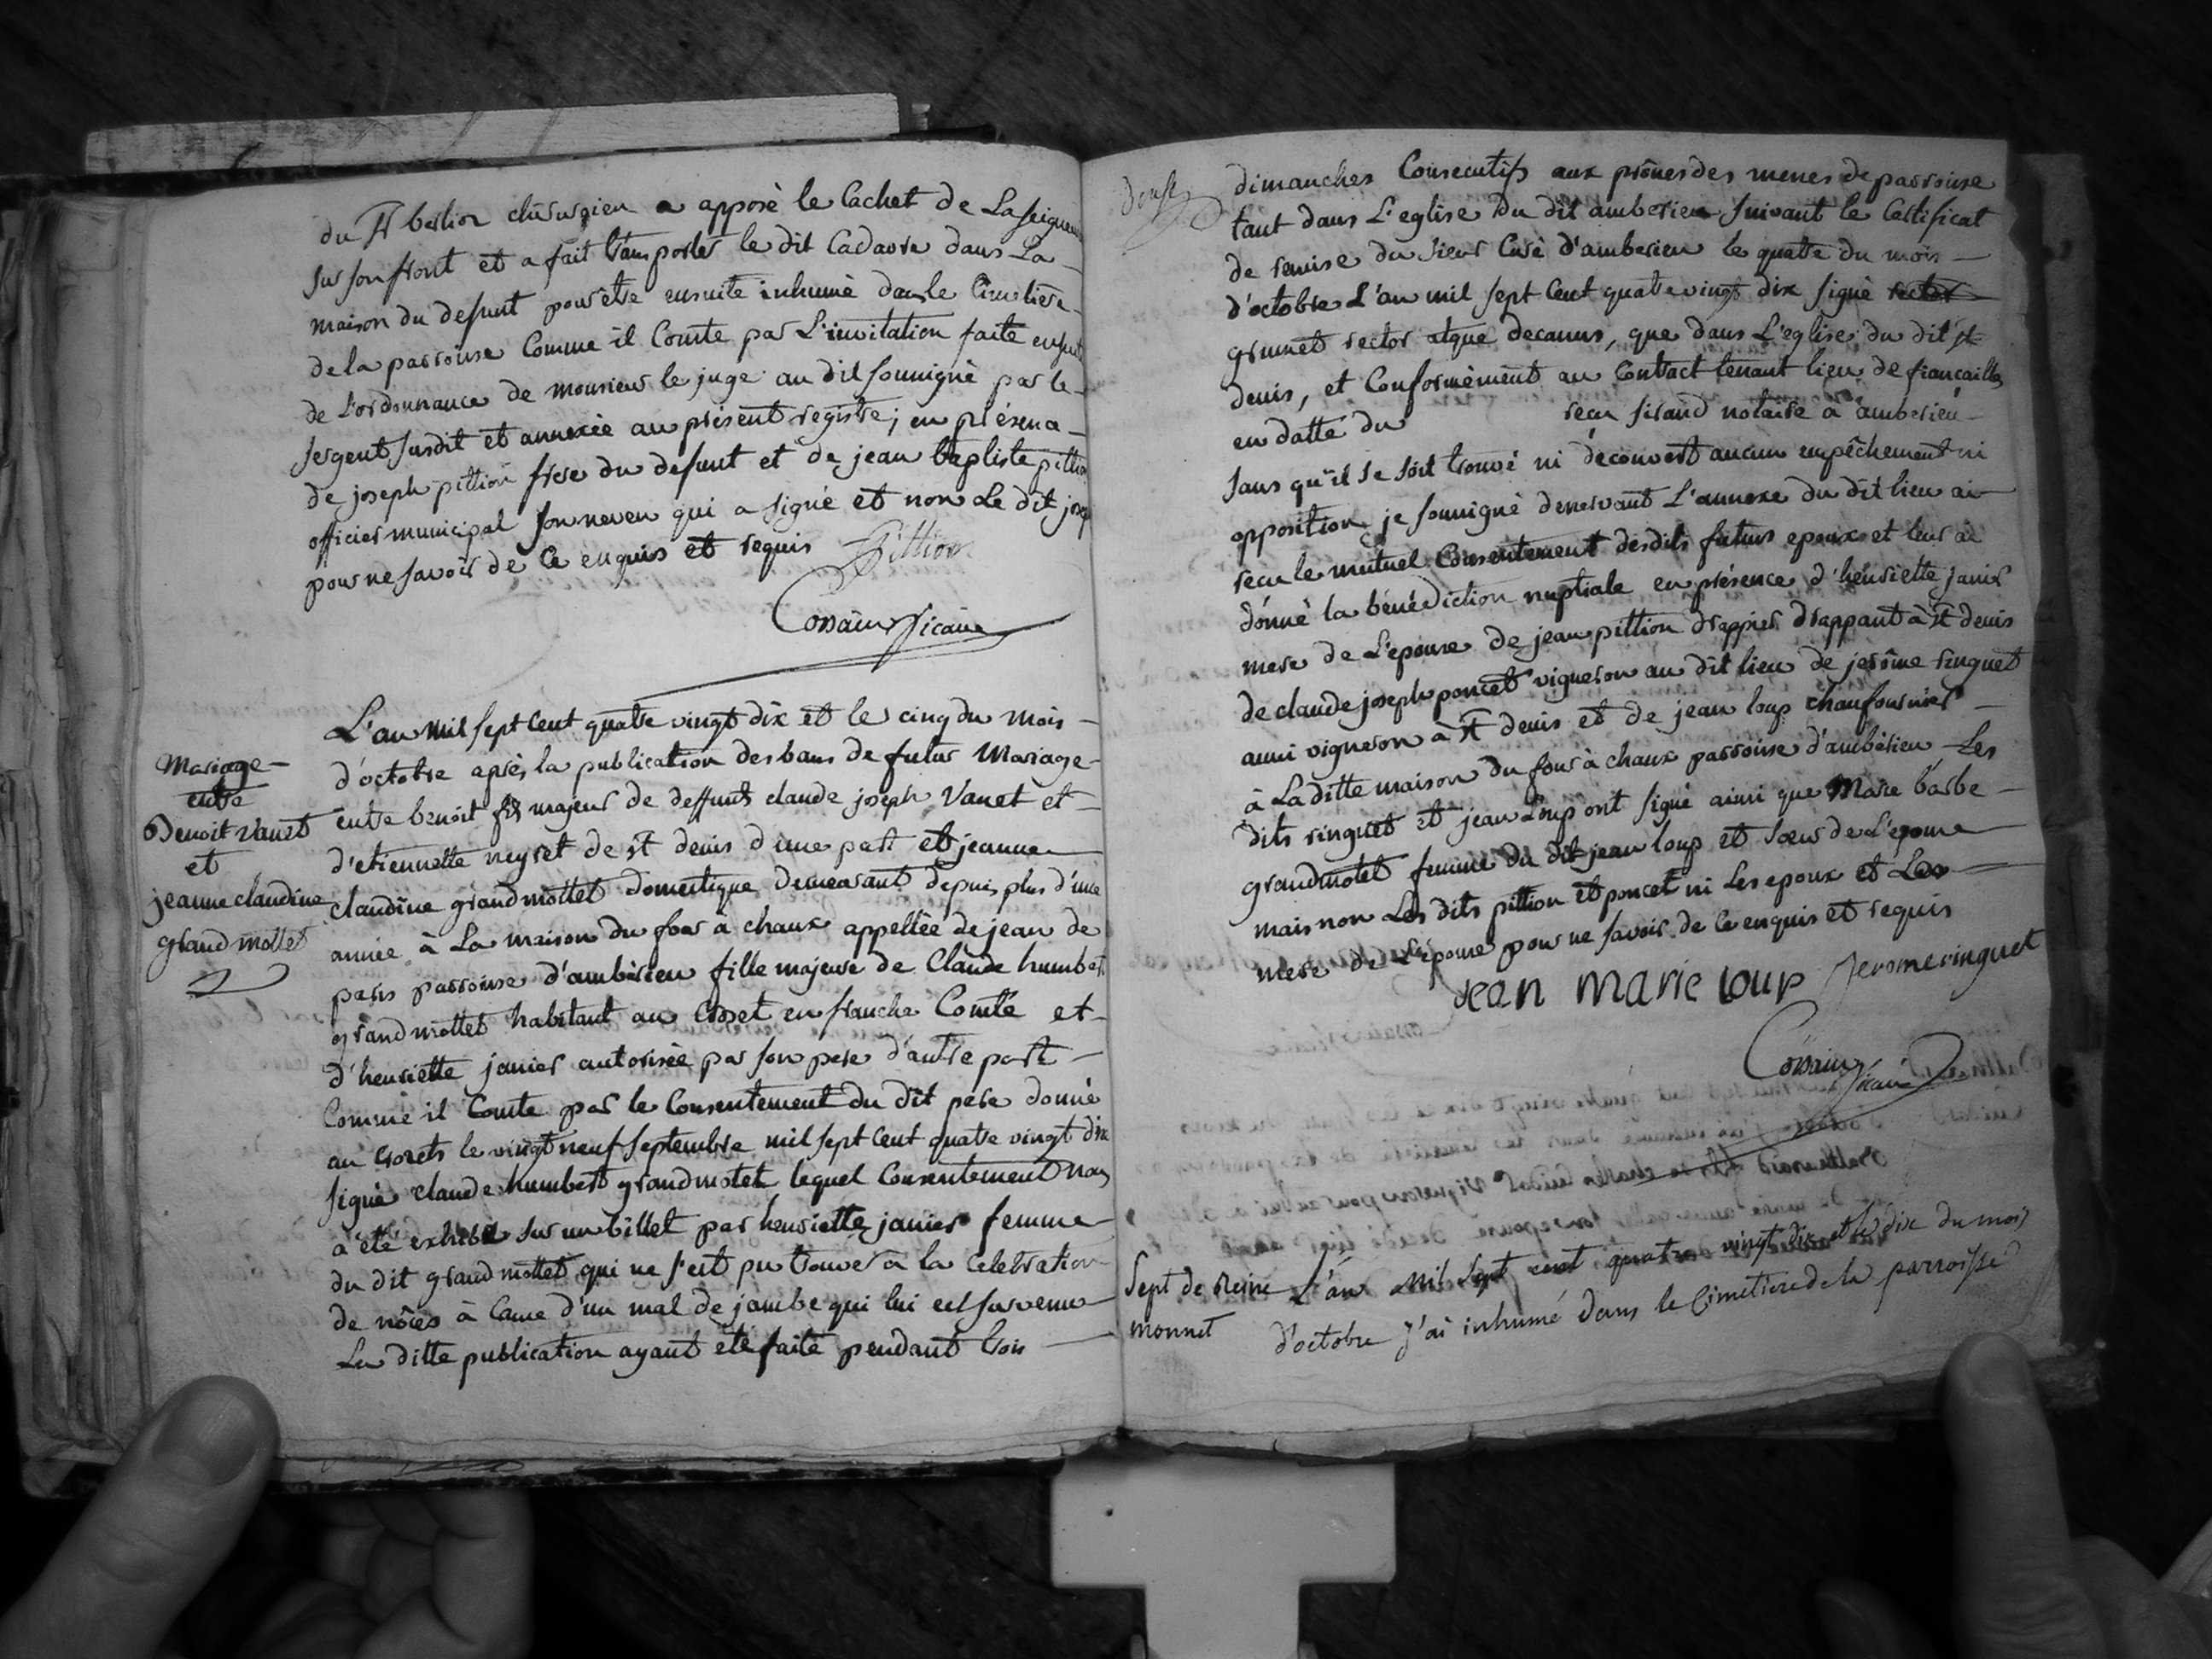 du Sr berlior chirurgien a apposé le Cachet de La seigneurie
sur son front et a fait transporter le dit Cadavre dans La
maison du defunt pour être ensuite inhumé dans le Cimetiere
de la parroisse Comme il Conste par L'invitation faite ensuite
de L'ordonnance de monsieur le juge au dit soussigné par le
sergent susdit et annexée au présent registre; en présence
de joseph pittion frere du defunt et de jean baptiste pittion
officier municipal son neveu qui a signé et non Le dit joseph
pour ne savoir de Ce enquis et requis Pittion
Cossain vicaire
Mariage
entre
Benoit Vanet
et
jeanne claudine
grand mottet
L'an mil sept Cent quatre vingt dix et le cinq du mois
d'octobre après la publication des bans de futur Mariage
entre benoit fils majeur de deffunts claude joseph Vanet et
d'etiennette neyret de st denis d'une part et jeanne
claudine grand mottet domestique demeurant depuis plus d'une
année à La maison du four à chaux appellée de jean de
paris parroisse d'ambérieu fille majeure de Claude humbert
grand mottet habitant au en franche Comté et
d'henriette janier autorisée par son pere d'autre part
Comme il Conste par le Consentement du dit pere donné
au le vingt neuf septembre mil sept Cent quatre vingt dix
signé claude humbert grandmotet lequel Consentement nous
a été exhibé sur un billet par henriette janier femme
du dit grand mottet qui ne s'est pu trouver à la Celebration
de nôces à Cause d'un mal de jambe qui lui est survenu
La ditte publication ayant été faite pendant trois
dimanches Consecutifs aux prônes des messes de parroisse
tant dans L'eglise du dit amberieu suivant le Certificat
de remise du sieur Curé d'amberieu le quatre du mois
d'octobre L'an mil sept Cent quatre vingt dix signé rector
grumet rector atque decanus, que dans L'eglise du dit st
denis, et Conformèment au Contract tenant lieu de fiancailles
en datte du recu sirand notaire a amberieu
sans qu'il se soit trouvé ni découvert aucun empêchement ni
opposition je soussigné desservant L'annexe du dit lieu ai
recu le mutuel Consentement desdits futurs epoux et leur ai
donné la bénédiction nuptiale en présence d'henriette janier
mere de L'epouse de jean pittion drappier drappant à st denis
de claude joseph poncet vigneron au dit lieu de jerôme ringuet
aussi vigneron à st denis et de jean loup chaufournier
à La ditte maison du four à chaux parroisse d'ambérieu Les
dits ringuet et jean Loup ont signé ainsi que Marie barbe
grandmotet femme du dit jean loup et sœur de L'epouse
mais non Les dits pittion et poncet ni Les epoux et La
mere de L'épouse pour ne savoir de Ce enquis et requis
jean marie loup jerome ringuet
Cossain vicaire
Sept de Reine
monnet
L'an mil sept cent quatre vingt dix et le dix du mois
d'octobre j'ai inhumé dans le Cimetiere de la parroisse